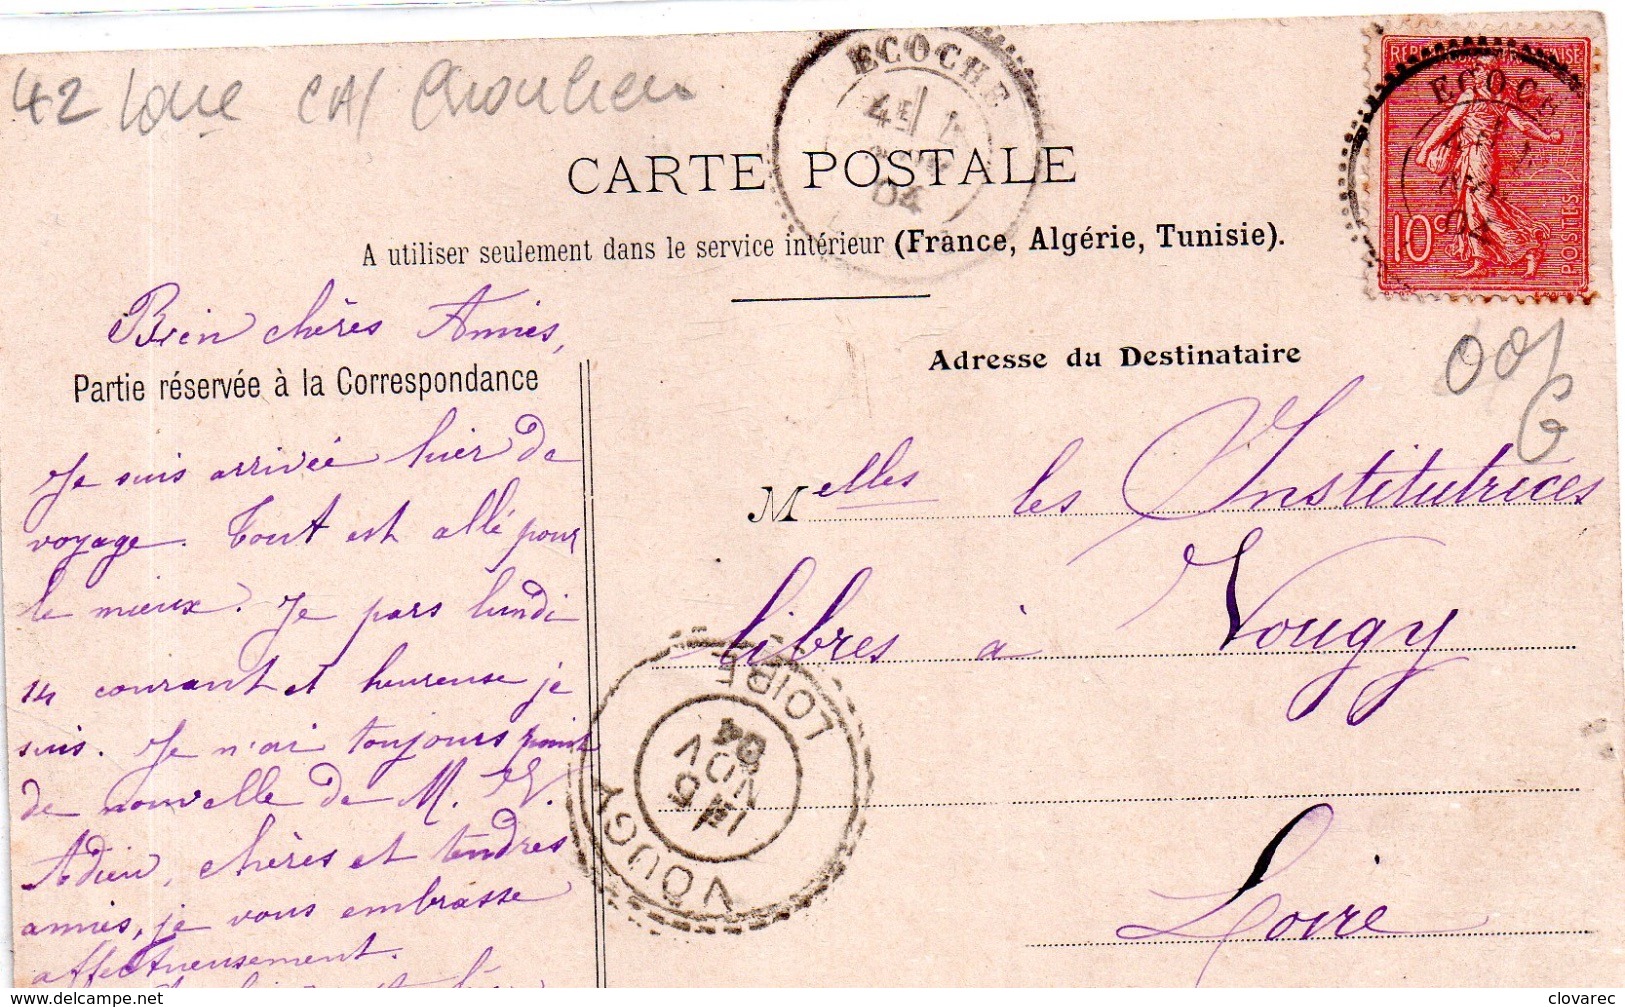 42 Loire
ECOCHE
04
CARTE POSTALE
A utiliser seulement dans le service intérieur (France, Algérie, Tunisie).
ECOCHE
10c
POSTES
Bien chères Amies,
Partie réservée à la Correspondance
Je suis arrivée hier de
voyage. Tout est allé pour
le mieux. Je pars lundi
14 courant et heureuse je
suis. Je n'ai toujours point
de nouvelle de M. V.
Adieu, chères et tendres
amies, je vous embrasse
affectueusement.
Adresse du Destinataire
Melles les Institutrices
libres à Vougy
Loire
VOUGY
LOIRE
5
NOV
04
delcampe.net
clovarec